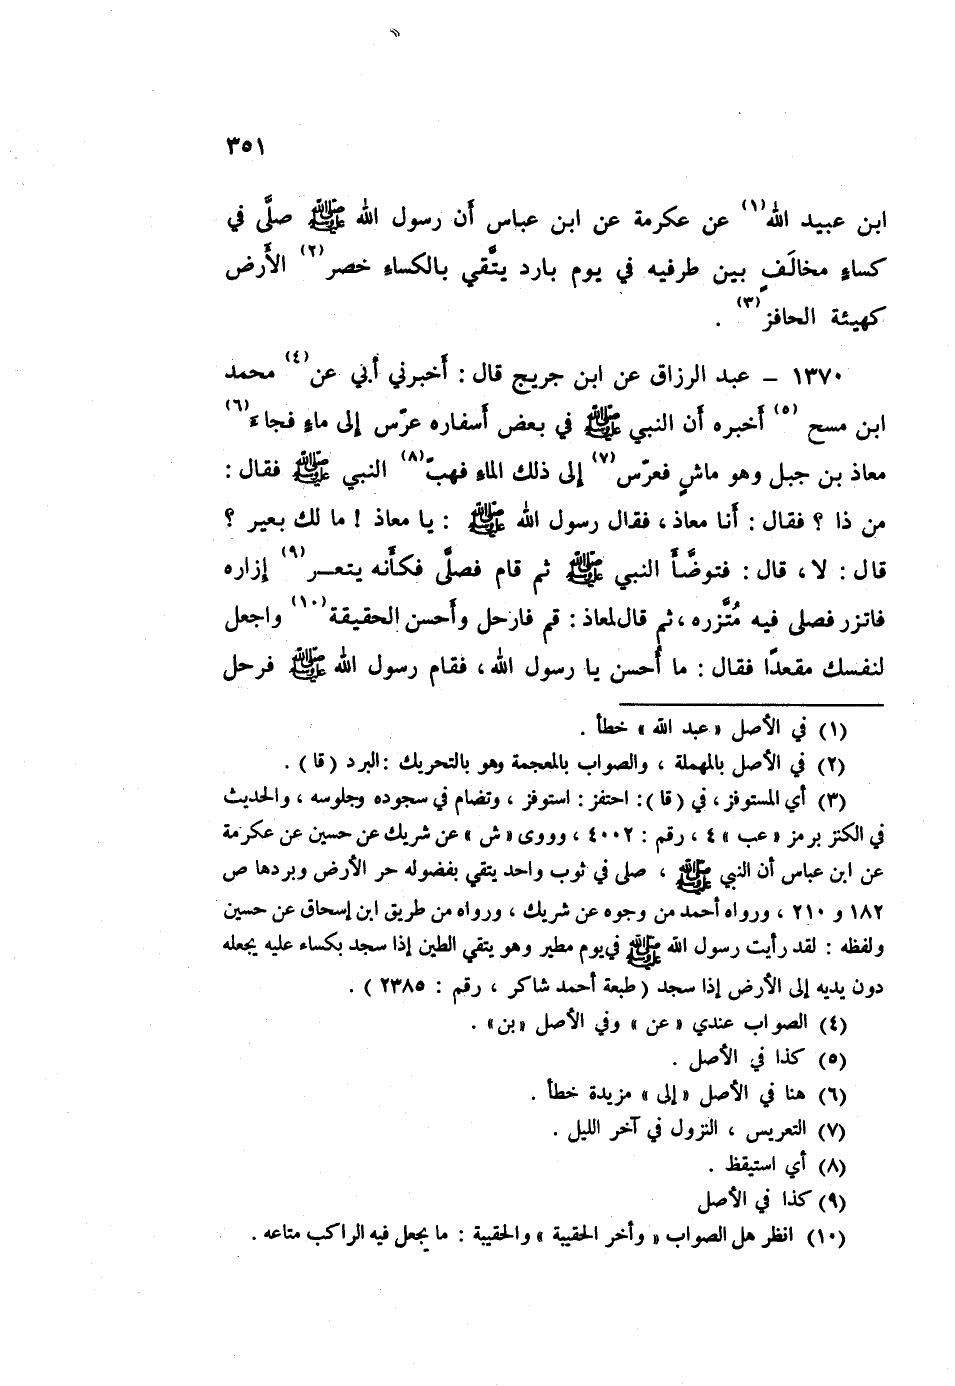 ٣٥١
ابن عبيد الله(١) عن عكرمة عن ابن عباس أن رسول الله ﷺ صلَّى في
كساءٍ مخالَفٍ بين طرفيه في يوم بارد يتَّقي بالكساءِ خصر(٢) الأَرض
كهيئة الحافز(٣) .
١٣٧٠ – عبد الرزاق عن ابن جريج قال : أَخبرني أبي عن(٤) محمد
ابن مسح (٥) أَخبره أَن النبي ﷺ في بعض أَسفاره عرّس إلى ماءٍ فجاءَ(٦)
معاذ بن جبل وهو ماشٍ فعرّس(٧) إلى ذلك الماءِ فهبّ(٨) النبي ﷺ فقال :
من ذا ؟ فقال : أَنا معاذ ، فقال رسول الله ﷺ : يا معاذ ! ما لك بعير ؟
قال : لا ، قال : فتوضَّأَ النبي ﷺ ثم قام فصلَّى فكأَنه يتعـر(٩) إزاره
فاتزر فصلى فيه مُتَّزره ، ثم قال لمعاذ : قم فارحل وأَحسن الحقيقة(١٠) واجعل
لنفسك مقعدًا فقال : ما أُحسن يا رسول الله ، فقام رسول الله ﷺ فرحل
(١) في الأصل «عبد الله» خطأ .
(٢) في الأصل بالمهملة ، والصواب بالمعجمة وهو بالتحريك : البرد (قا) .
(٣) أي المستوفز ، في (قا) : احتفز : استوفز ، وتضام في سجوده وجلوسه ، والحديث
في الكنز برمز «عب» ٤ ، رقم : ٤٠٠٢ ، وووى «ش» عن شريك عن حسين عن عكرمة
عن ابن عباس أن النبي ﷺ ، صلى في ثوب واحد يتقي بفضوله حر الأرض وبردها ص
١٨٢ و ٢١٠ ، ورواه أحمد من وجوه عن شريك ، ورواه من طريق ابن إسحاق عن حسين
ولفظه : لقد رأيت رسول الله ﷺ في يوم مطير وهو يتقي الطين إذا سجد بكساء عليه يجعله
دون يديه إلى الأرض إذا سجد (طبعة أحمد شاكر ، رقم : ٢٣٨٥) .
(٤) الصواب عندي «عن» وفي الأصل «بن» .
(٥) كذا في الأصل .
(٦) هنا في الأصل «إلى» مزيدة خطأ .
(٧) التعريس ، النزول في آخر الليل .
(٨) أي استيقظ .
(٩) كذا في الأصل
(١٠) انظر هل الصواب «وأخر الحقيبة» والحقيبة : ما يجعل فيه الراكب متاعه .